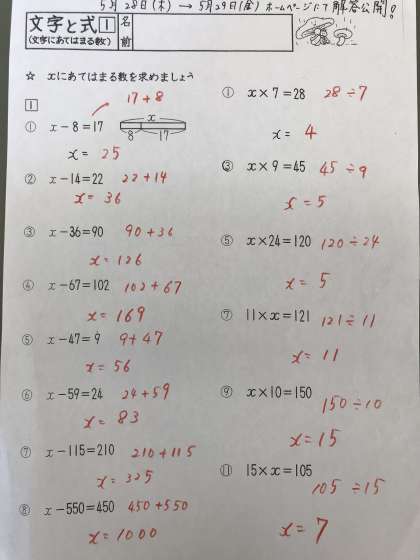 5月28日(木) → 5月29日(金) ホームページにて解答公開!
文字と式 1
(文字にあてはまる数)
名前
☆ xにあてはまる数を求めましょう
1
17+8
① x-8=17
x
8 17
x= 25
② x-14=22 22+14
x= 36
③ x-36=90 90+36
x= 126
④ x-67=102 102+67
x= 169
⑤ x-47=9 9+47
x= 56
⑥ x-59=24 24+59
x= 83
⑦ x-115=210 210+115
x= 325
⑧ x-550=450 450+550
x= 1000
① x×7=28 28÷7
x= 4
③ x×9=45 45÷9
x= 5
⑤ x×24=120 120÷24
x= 5
⑦ 11×x=121 121÷11
x= 11
⑨ x×10=150 150÷10
x= 15
⑪ 15×x=105 105÷15
x= 7